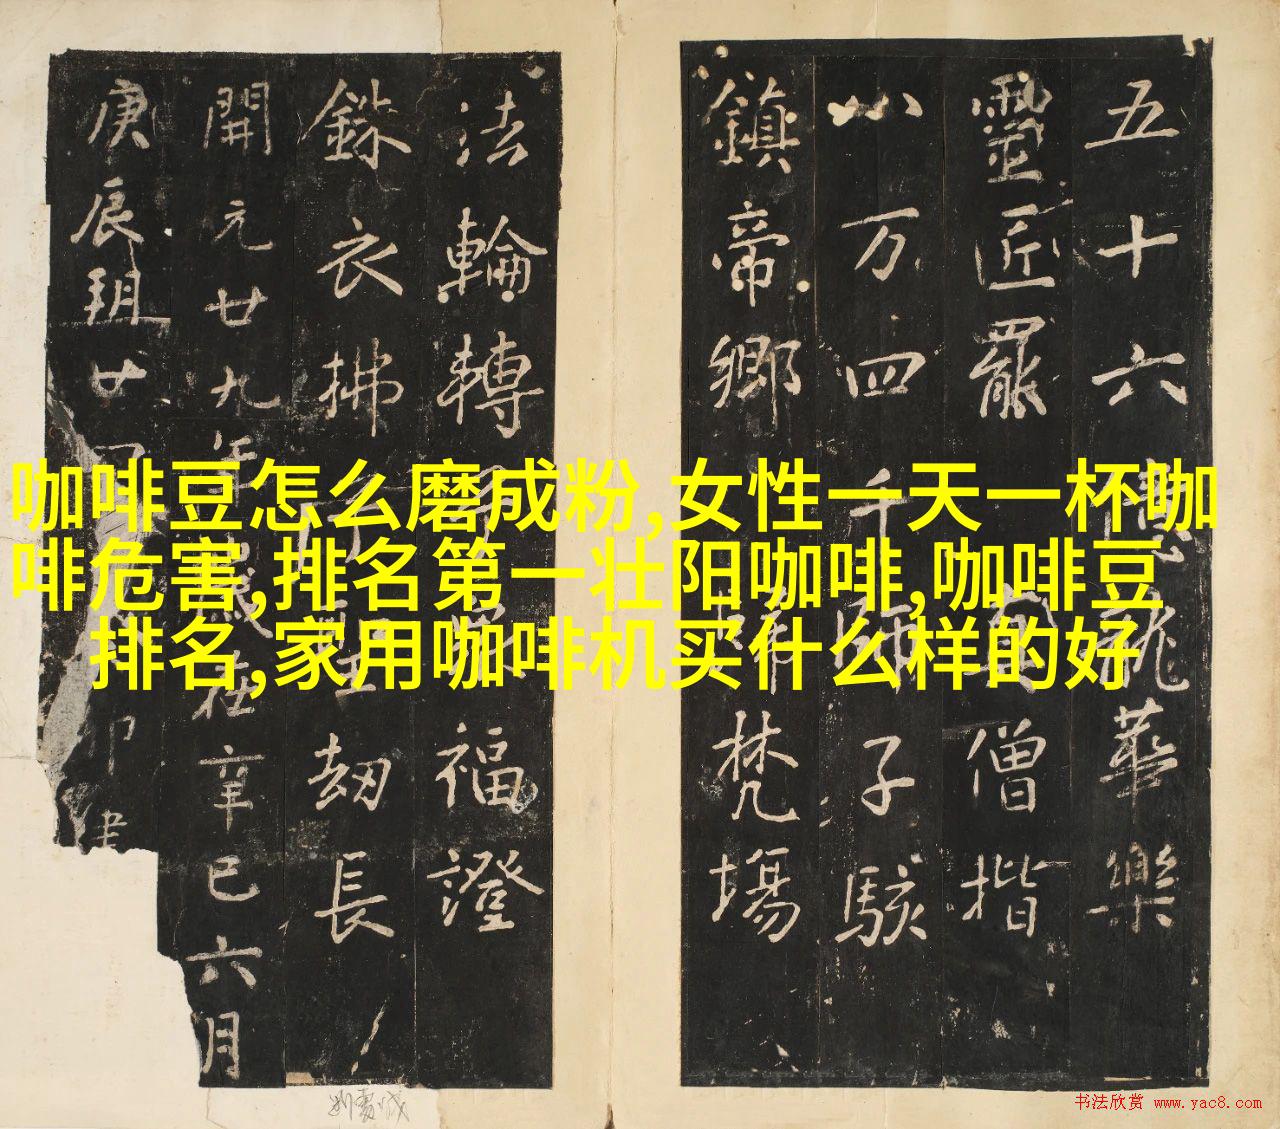 咖啡豆怎么磨成粉,女性一天一杯咖
啡危害,排名第一壮阳咖啡,咖啡豆
排名,家用咖啡机买什么样的好
五十六龍華樂
靈匠罷僧揩
八万四千師子駭
鎮帝鄉梵場
法輪轉福證
銖衣拂劫長
開元廿九年歲在辛巳六月
庚辰朔廿
书法欣赏 www.yac8.com